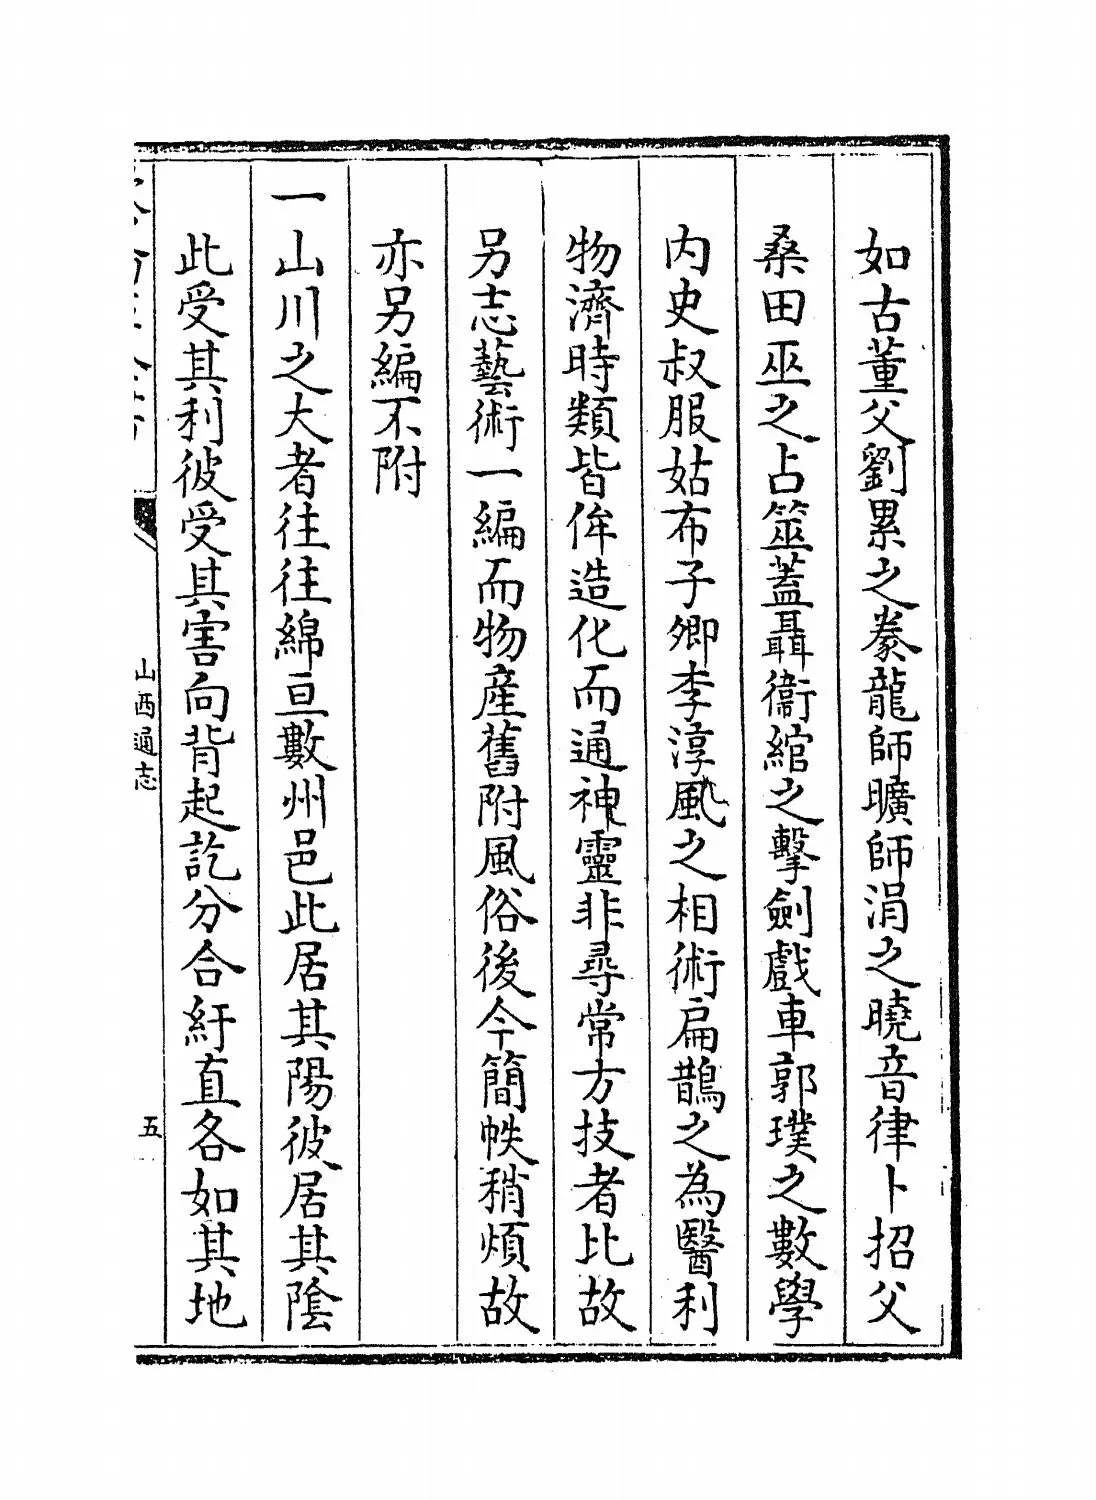 如古董父劉累之豢龍師曠師涓之曉音律卜招父
桑田巫之占筮蓋聶衞綰之擊劍戲車郭璞之數學
内史叔服姑布子卿李淳風之相術扁鵲之為醫利
物濟時類皆侔造化而通神靈非尋常方技者比故
另志藝術一編而物産舊附風俗後今簡帙稍煩故
亦另編不附
一山川之大者往往綿亘數州邑此居其陽彼居其隂
此受其利彼受其害向背起訖分合紆直各如其地
山西通志
五